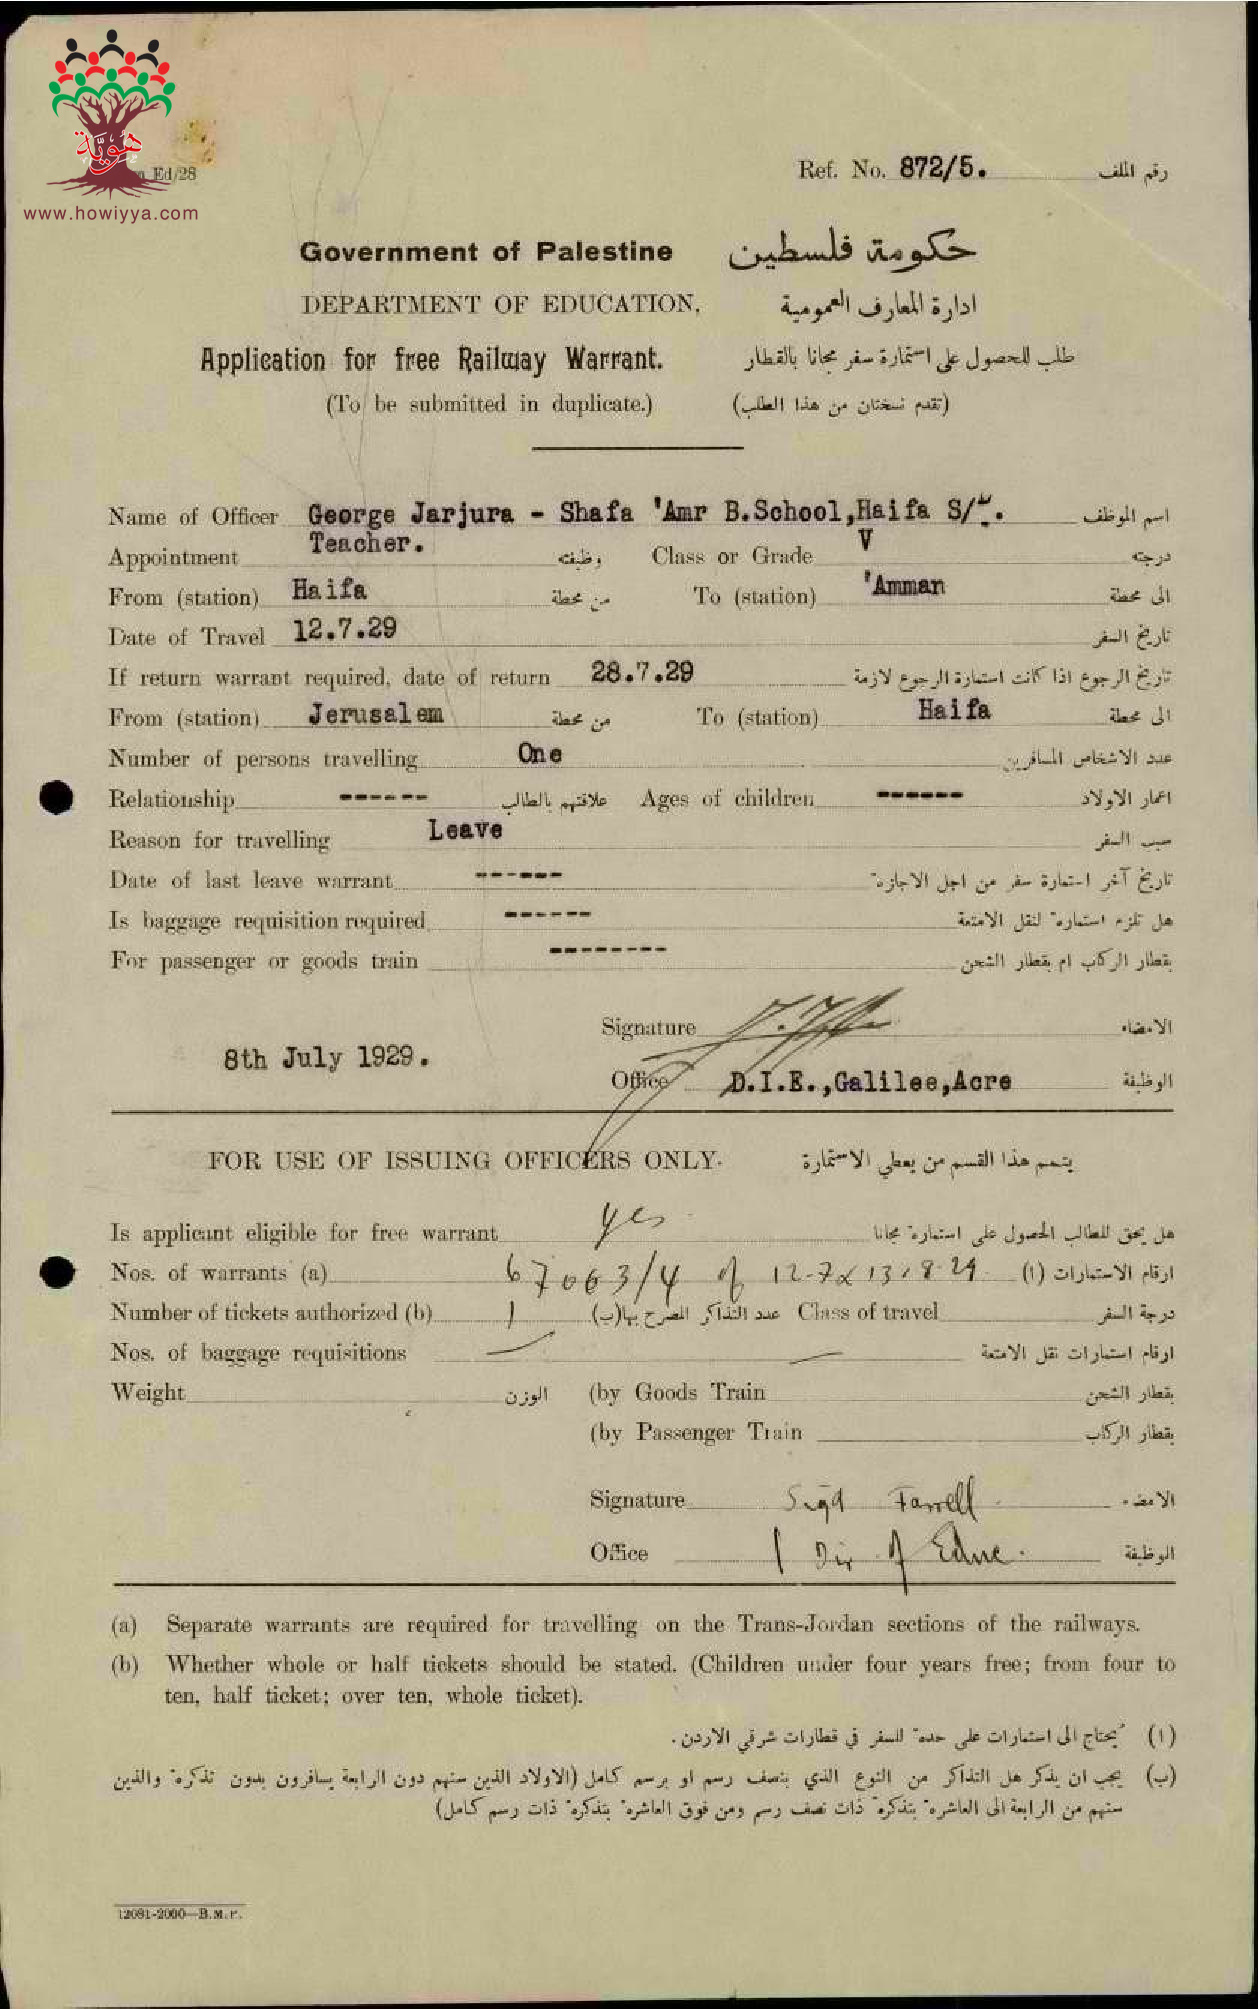 هوية
www.howiyya.com
Ed/28
Ref. No. 872/5. رقم الملف
Government of Palestine حكومة فلسطين
DEPARTMENT OF EDUCATION, ادارة المعارف العمومية
Application for free Railway Warrant. طلب للحصول على استمارة سفر مجانا بالقطار
(To be submitted in duplicate.) (تقدم نسختان من هذا الطلب)
Name of Officer George Jarjura - Shafa 'Amr B.School,Haifa S/ اسم الموظف
Appointment Teacher. وظيفته Class or Grade V درجته
From (station) Haifa من محطة To (station) 'Amman الى محطة
Date of Travel 12.7.29 تاريخ السفر
If return warrant required, date of return 28.7.29 تاريخ الرجوع اذا كانت استمارة الرجوع لازمة
From (station) Jerusalem من محطة To (station) Haifa الى محطة
Number of persons travelling One عدد الاشخاص المسافرين
Relationship ------ علاقتهم بالطالب Ages of children ------ اعمار الاولاد
Reason for travelling Leave سبب السفر
Date of last leave warrant ------ تاريخ آخر استمارة سفر من اجل الاجازة
Is baggage requisition required ------ هل تلزم استمارة لنقل الامتعة
For passenger or goods train -------- بقطار الركاب ام بقطار الشحن
Signature الامضاء
8th July 1929.
Office D.I.E.,Galilee,Acre الوظيفة
FOR USE OF ISSUING OFFICERS ONLY. يتمم هذا القسم من يعطي الاستمارة
Is applicant eligible for free warrant yes هل يحق للطالب الحصول على استمارة مجانا
Nos. of warrants (a) 67063/4 of 12-7 & 13.8.29 ارقام الاستمارات (ا)
Number of tickets authorized (b) 1 عدد التذاكر المصرح بها (ب) Class of travel درجة السفر
Nos. of baggage requisitions — — ارقام استمارات نقل الامتعة
Weight الوزن (by Goods Train بقطار الشحن
(by Passenger Train بقطار الركاب
Signature Sigd Farrell الامضاء
Office / Dir of Educ. الوظيفة
(a) Separate warrants are required for travelling on the Trans-Jordan sections of the railways.
(b) Whether whole or half tickets should be stated. (Children under four years free; from four to
ten, half ticket; over ten, whole ticket).
(ا) يحتاج الى استمارات على حدة للسفر في قطارات شرقي الاردن.
(ب) يجب ان يذكر هل التذاكر من النوع الذي بنصف رسم او برسم كامل (الاولاد الذين سنهم دون الرابعة يسافرون بدون تذكرة والذين
سنهم من الرابعة الى العاشرة بتذكرة ذات نصف رسم ومن فوق العاشرة بتذكرة ذات رسم كامل)
12081-2000—B.M.P.